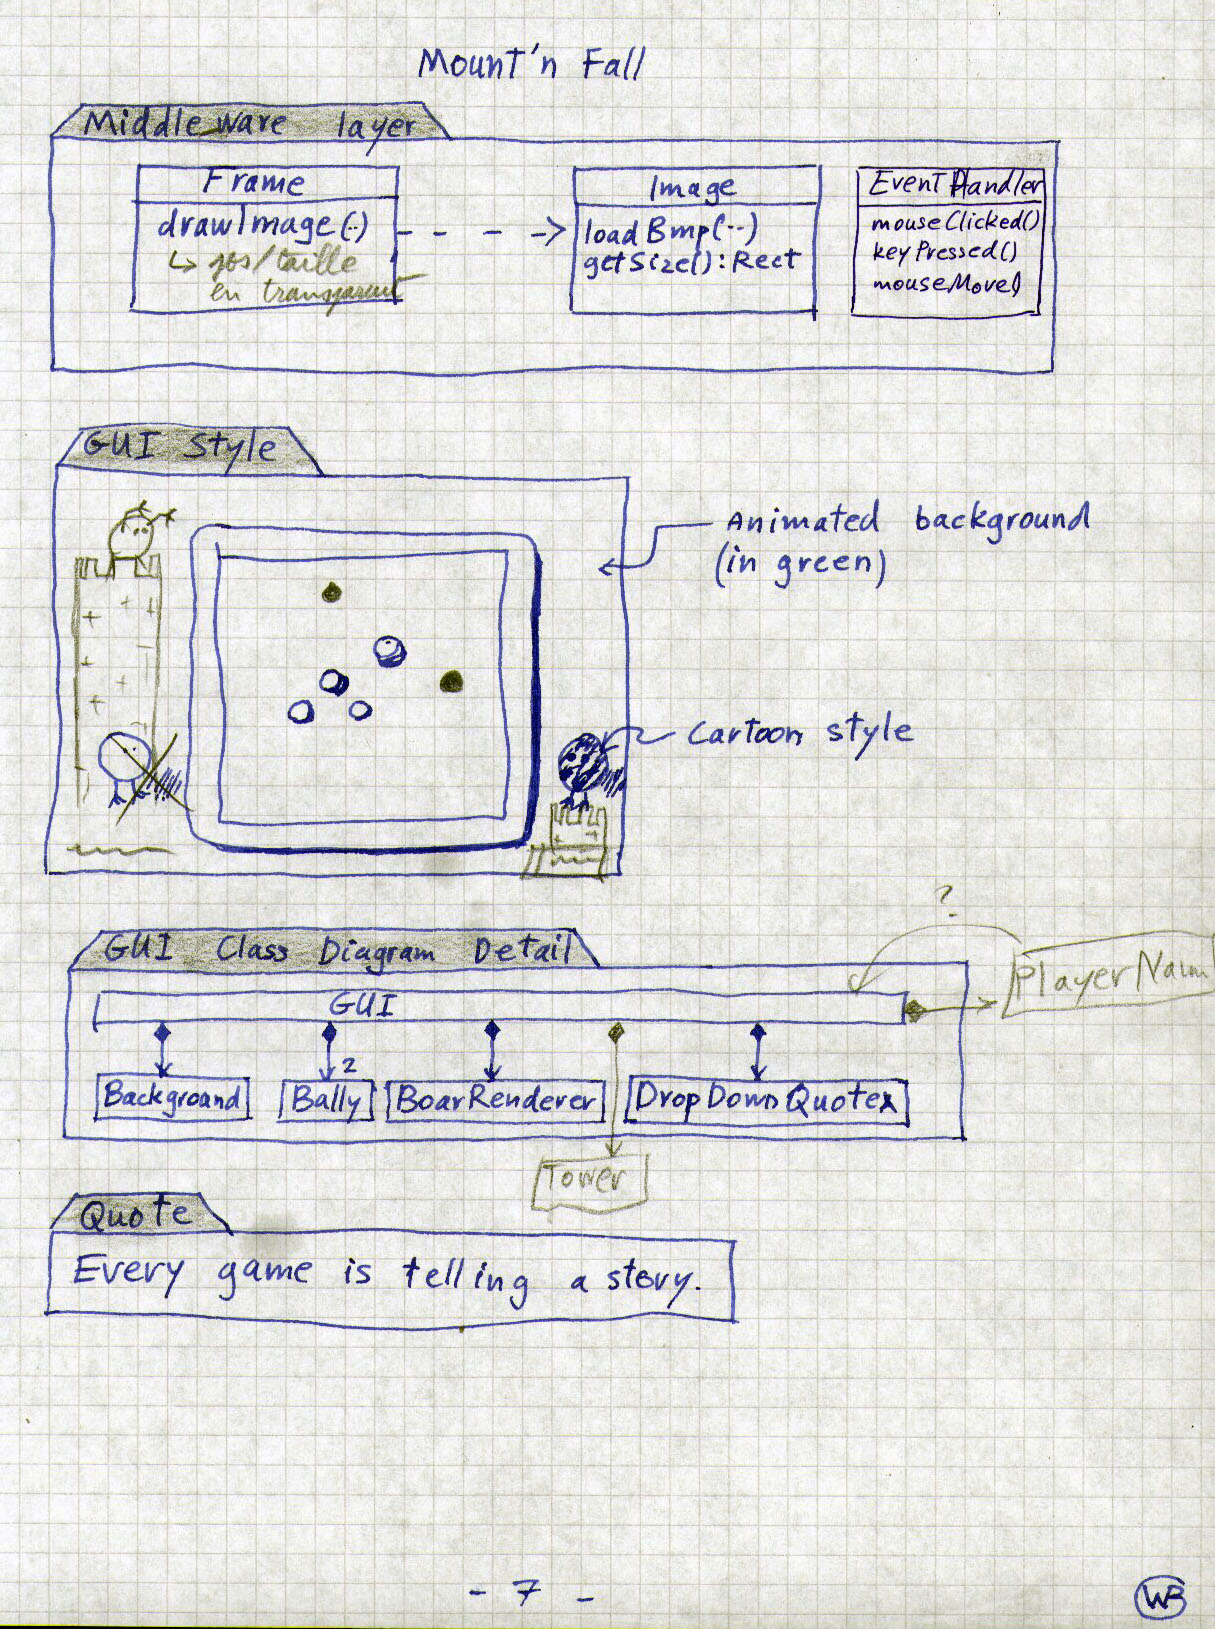 Mount'n Fall
Middleware layer
Frame
drawImage(..)
↳ pos/taille
en transparent
Image
loadBmp(..)
getSize():Rect
EventHandler
mouseClicked()
keyPressed()
mouseMove()
GUI Style
Animated background
(in green)
Cartoon style
?
GUI Class Diagram Detail
PlayerName
GUI
2
Background
Bally
BoarRenderer
DropDownQuotes
Tower
Quote
Every game is telling a story.
- 7 -
WB